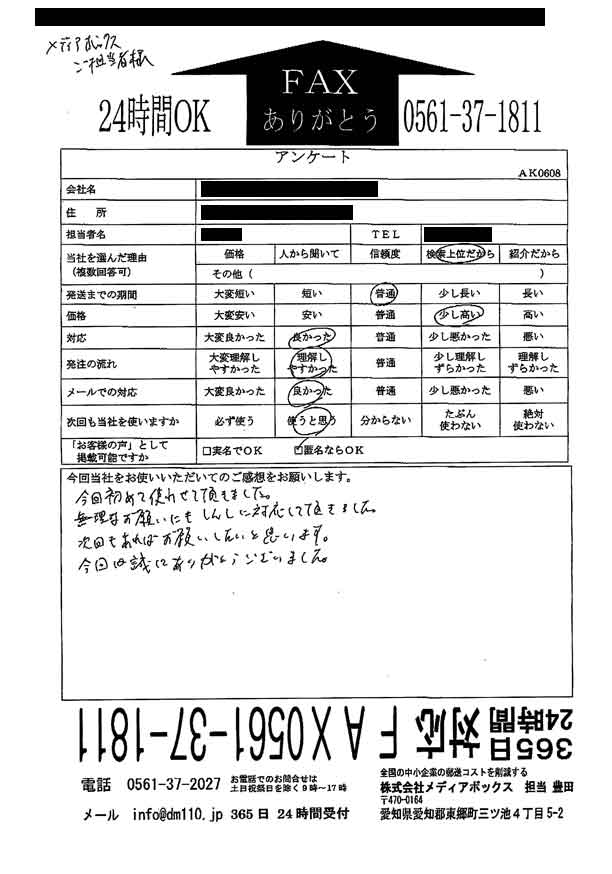 メディアボックス
ご担当者様
FAX
ありがとう
24時間OK
0561-37-1811
アンケート
AK0608
会社名
住 所
担当者名 TEL
当社を選んだ理由
(複数回答可)
価格 人から聞いて 信頼度 検索上位だから 紹介だから
その他 ( )
発送までの期間 大変短い 短い 普通 少し長い 長い
価格 大変安い 安い 普通 少し高い 高い
対応 大変良かった 良かった 普通 少し悪かった 悪い
発注の流れ 大変理解しやすかった 理解しやすかった 普通 少し理解しずらかった 理解しずらかった
メールでの対応 大変良かった 良かった 普通 少し悪かった 悪い
次回も当社を使いますか 必ず使う 使うと思う 分からない たぶん使わない 絶対使わない
「お客様の声」として
掲載可能ですか
□実名でOK ☑匿名ならOK
今回当社をお使いいただいてのご感想をお願いします。
今回初めて使わせて頂きました。
無理なお願いにもしんしに対応して頂きました。
次回もあればお願いしたいと思います。
今回は誠にありがとうございました。
365日
24時間対応FAX0561-37-1811
電話 0561-37-2027 お電話でのお問合せは
土日祝祭日を除く9時～17時
メール info@dm110.jp 365日 24時間受付
全国の中小企業の郵送コストを削減する
株式会社メディアボックス 担当 豊田
〒470-0164
愛知県愛知郡東郷町三ツ池4丁目5-2